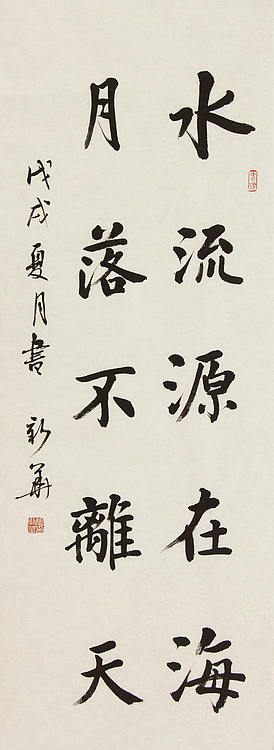 水流源在海
月落不離天
戊戌夏月書 新華